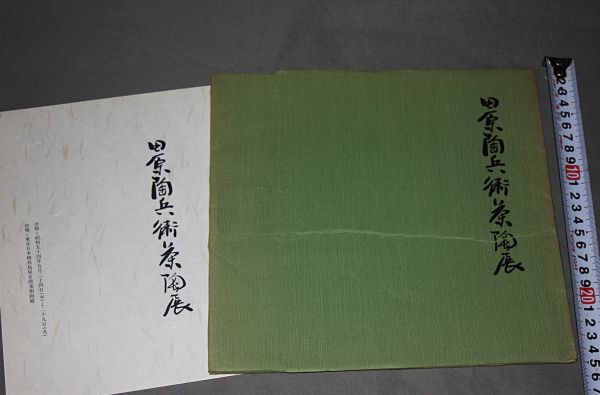 田原陶兵衛茶陶展
会期・昭和五十四年五月二十四日(木)~二十九日(火)
会場・東京日本橋高島屋六階美術画廊
田原陶兵衛茶陶展
2 3 4 5 6 7 8 9 10 1 2 3 4 5 6 7 8 9 20 1 2 3 4 5